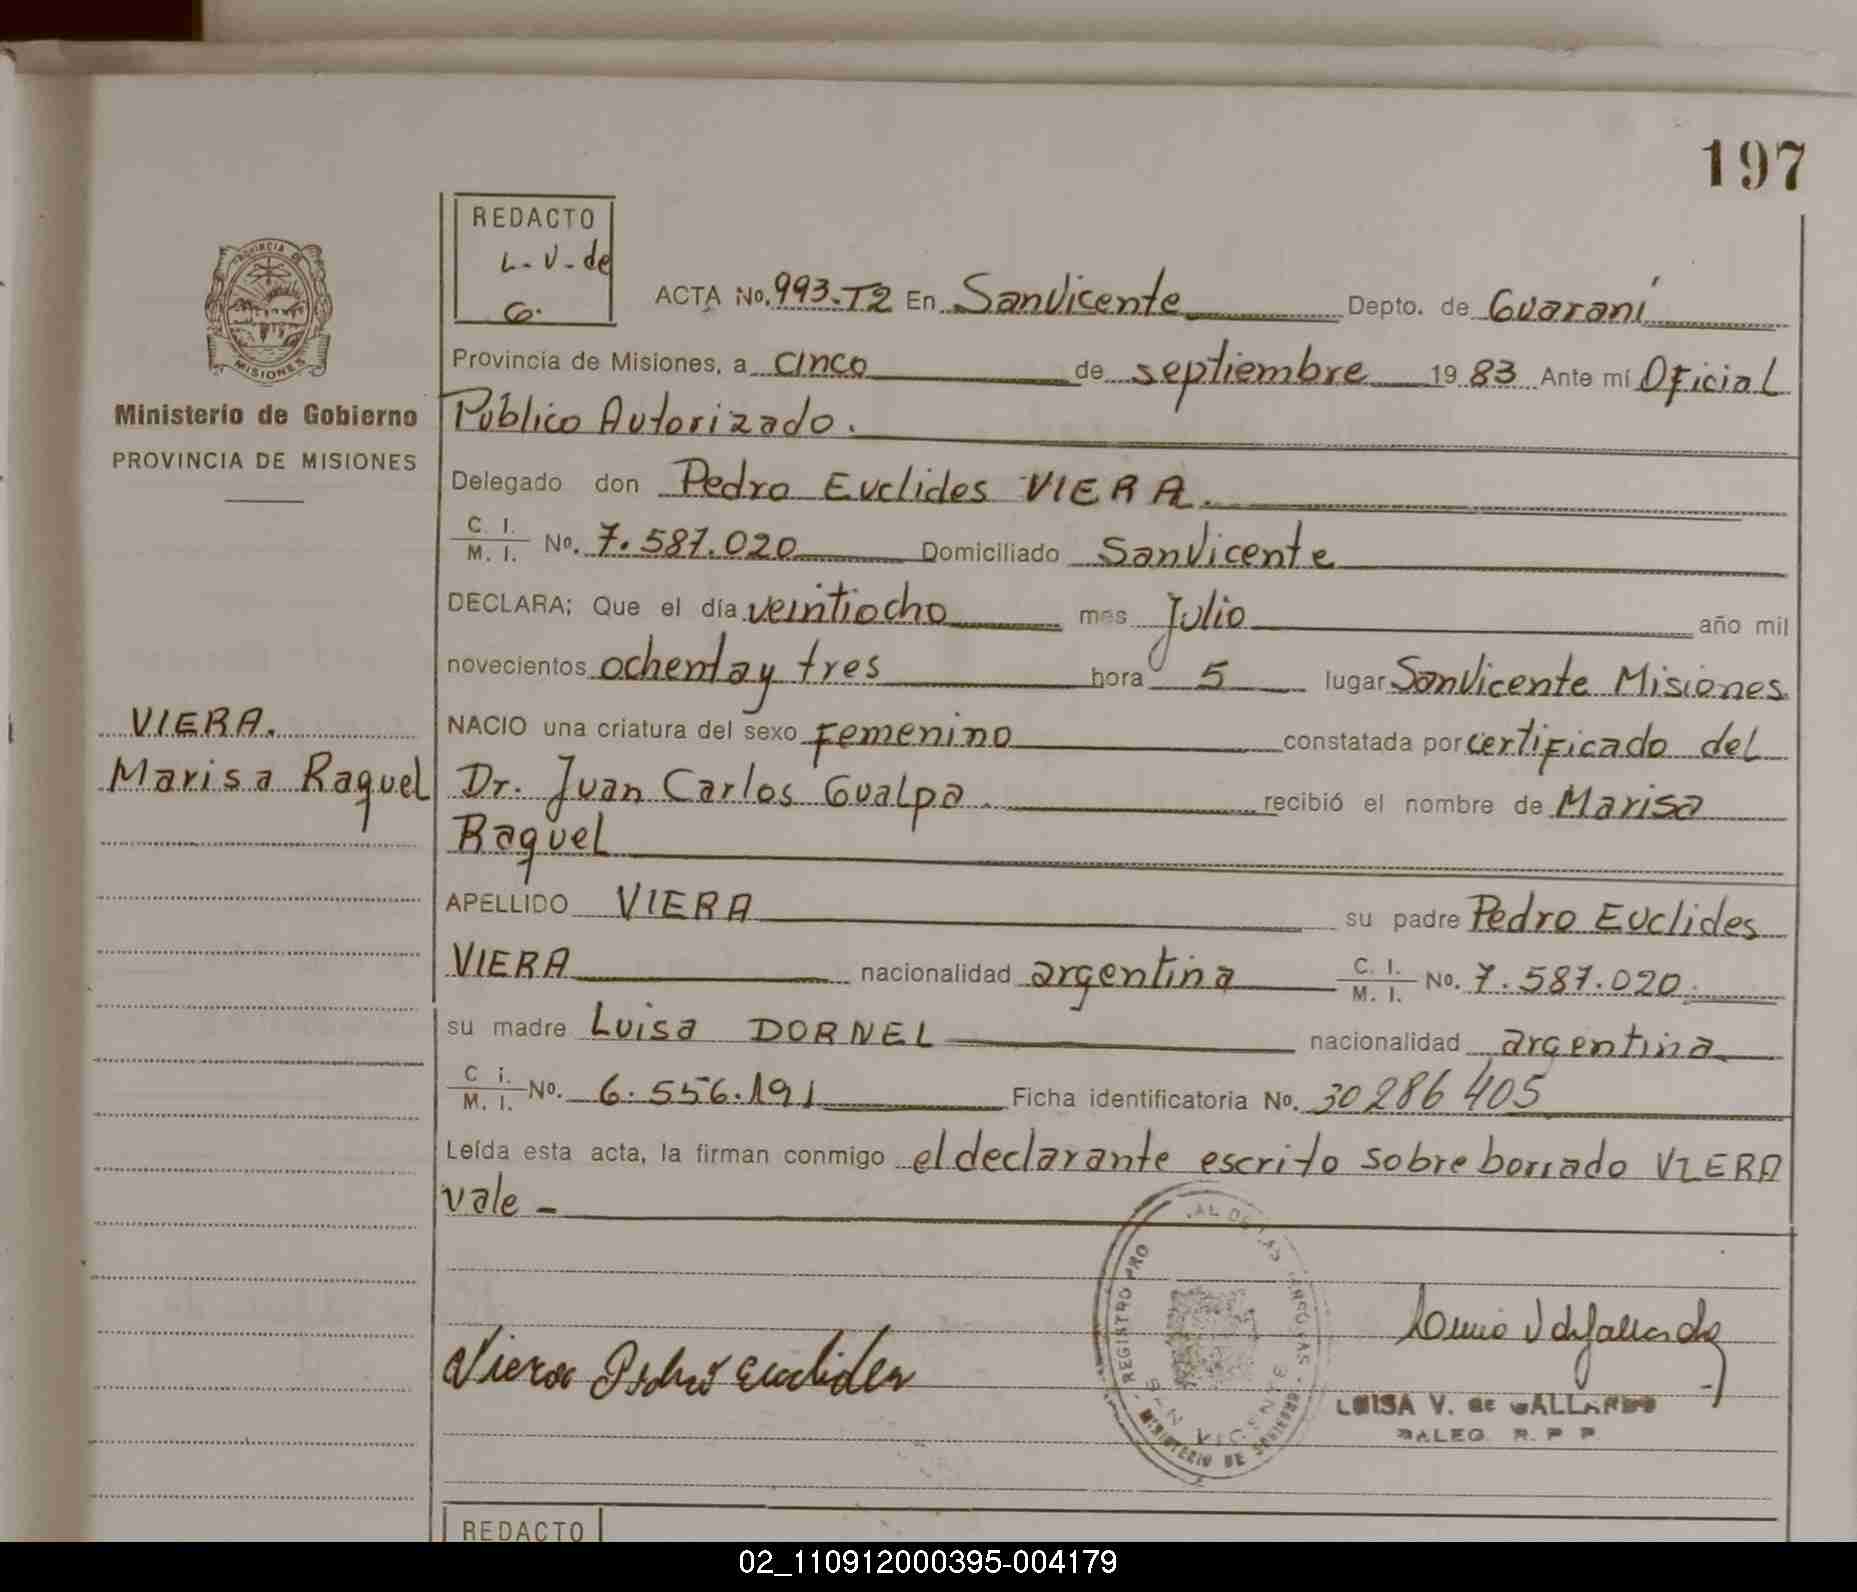 197
REDACTO
L. V. de
G.
PROVINCIA DE
MISIONES
Ministerio de Gobierno
PROVINCIA DE MISIONES
ACTA No. 993-T2 En San Vicente Depto. de Guaraní
Provincia de Misiones, a cinco de septiembre 1983 Ante mí Oficial
Público Autorizado.
Delegado don Pedro Euclides VIERA.
C. I. / M. I. No. 7.587.020 Domiciliado San Vicente
DECLARA; Que el día veintiocho mes Julio año mil
novecientos ochenta y tres hora 5 lugar San Vicente Misiones
VIERA.
NACIO una criatura del sexo Femenino constatada por certificado del
Marisa Raquel
Dr. Juan Carlos Gualpa. recibió el nombre de Marisa
Raquel
APELLIDO VIERA su padre Pedro Euclides
VIERA nacionalidad argentina C. I. / M. I. No. 7.587.020
su madre Luisa DORNEL nacionalidad argentina
C i. / M. I. No. 6.556.191 Ficha identificatoria No. 30286405
Leída esta acta, la firman conmigo el declarante escrito sobre borrado VIERA
vale -
Viera Pedro Euclides
LUISA V. de GALLARDO
R. P. P.
REGISTRO PRO AL DE LAS PERSONAS
MINISTERIO DE GOBIERNO
REDACTO
02_110912000395-004179